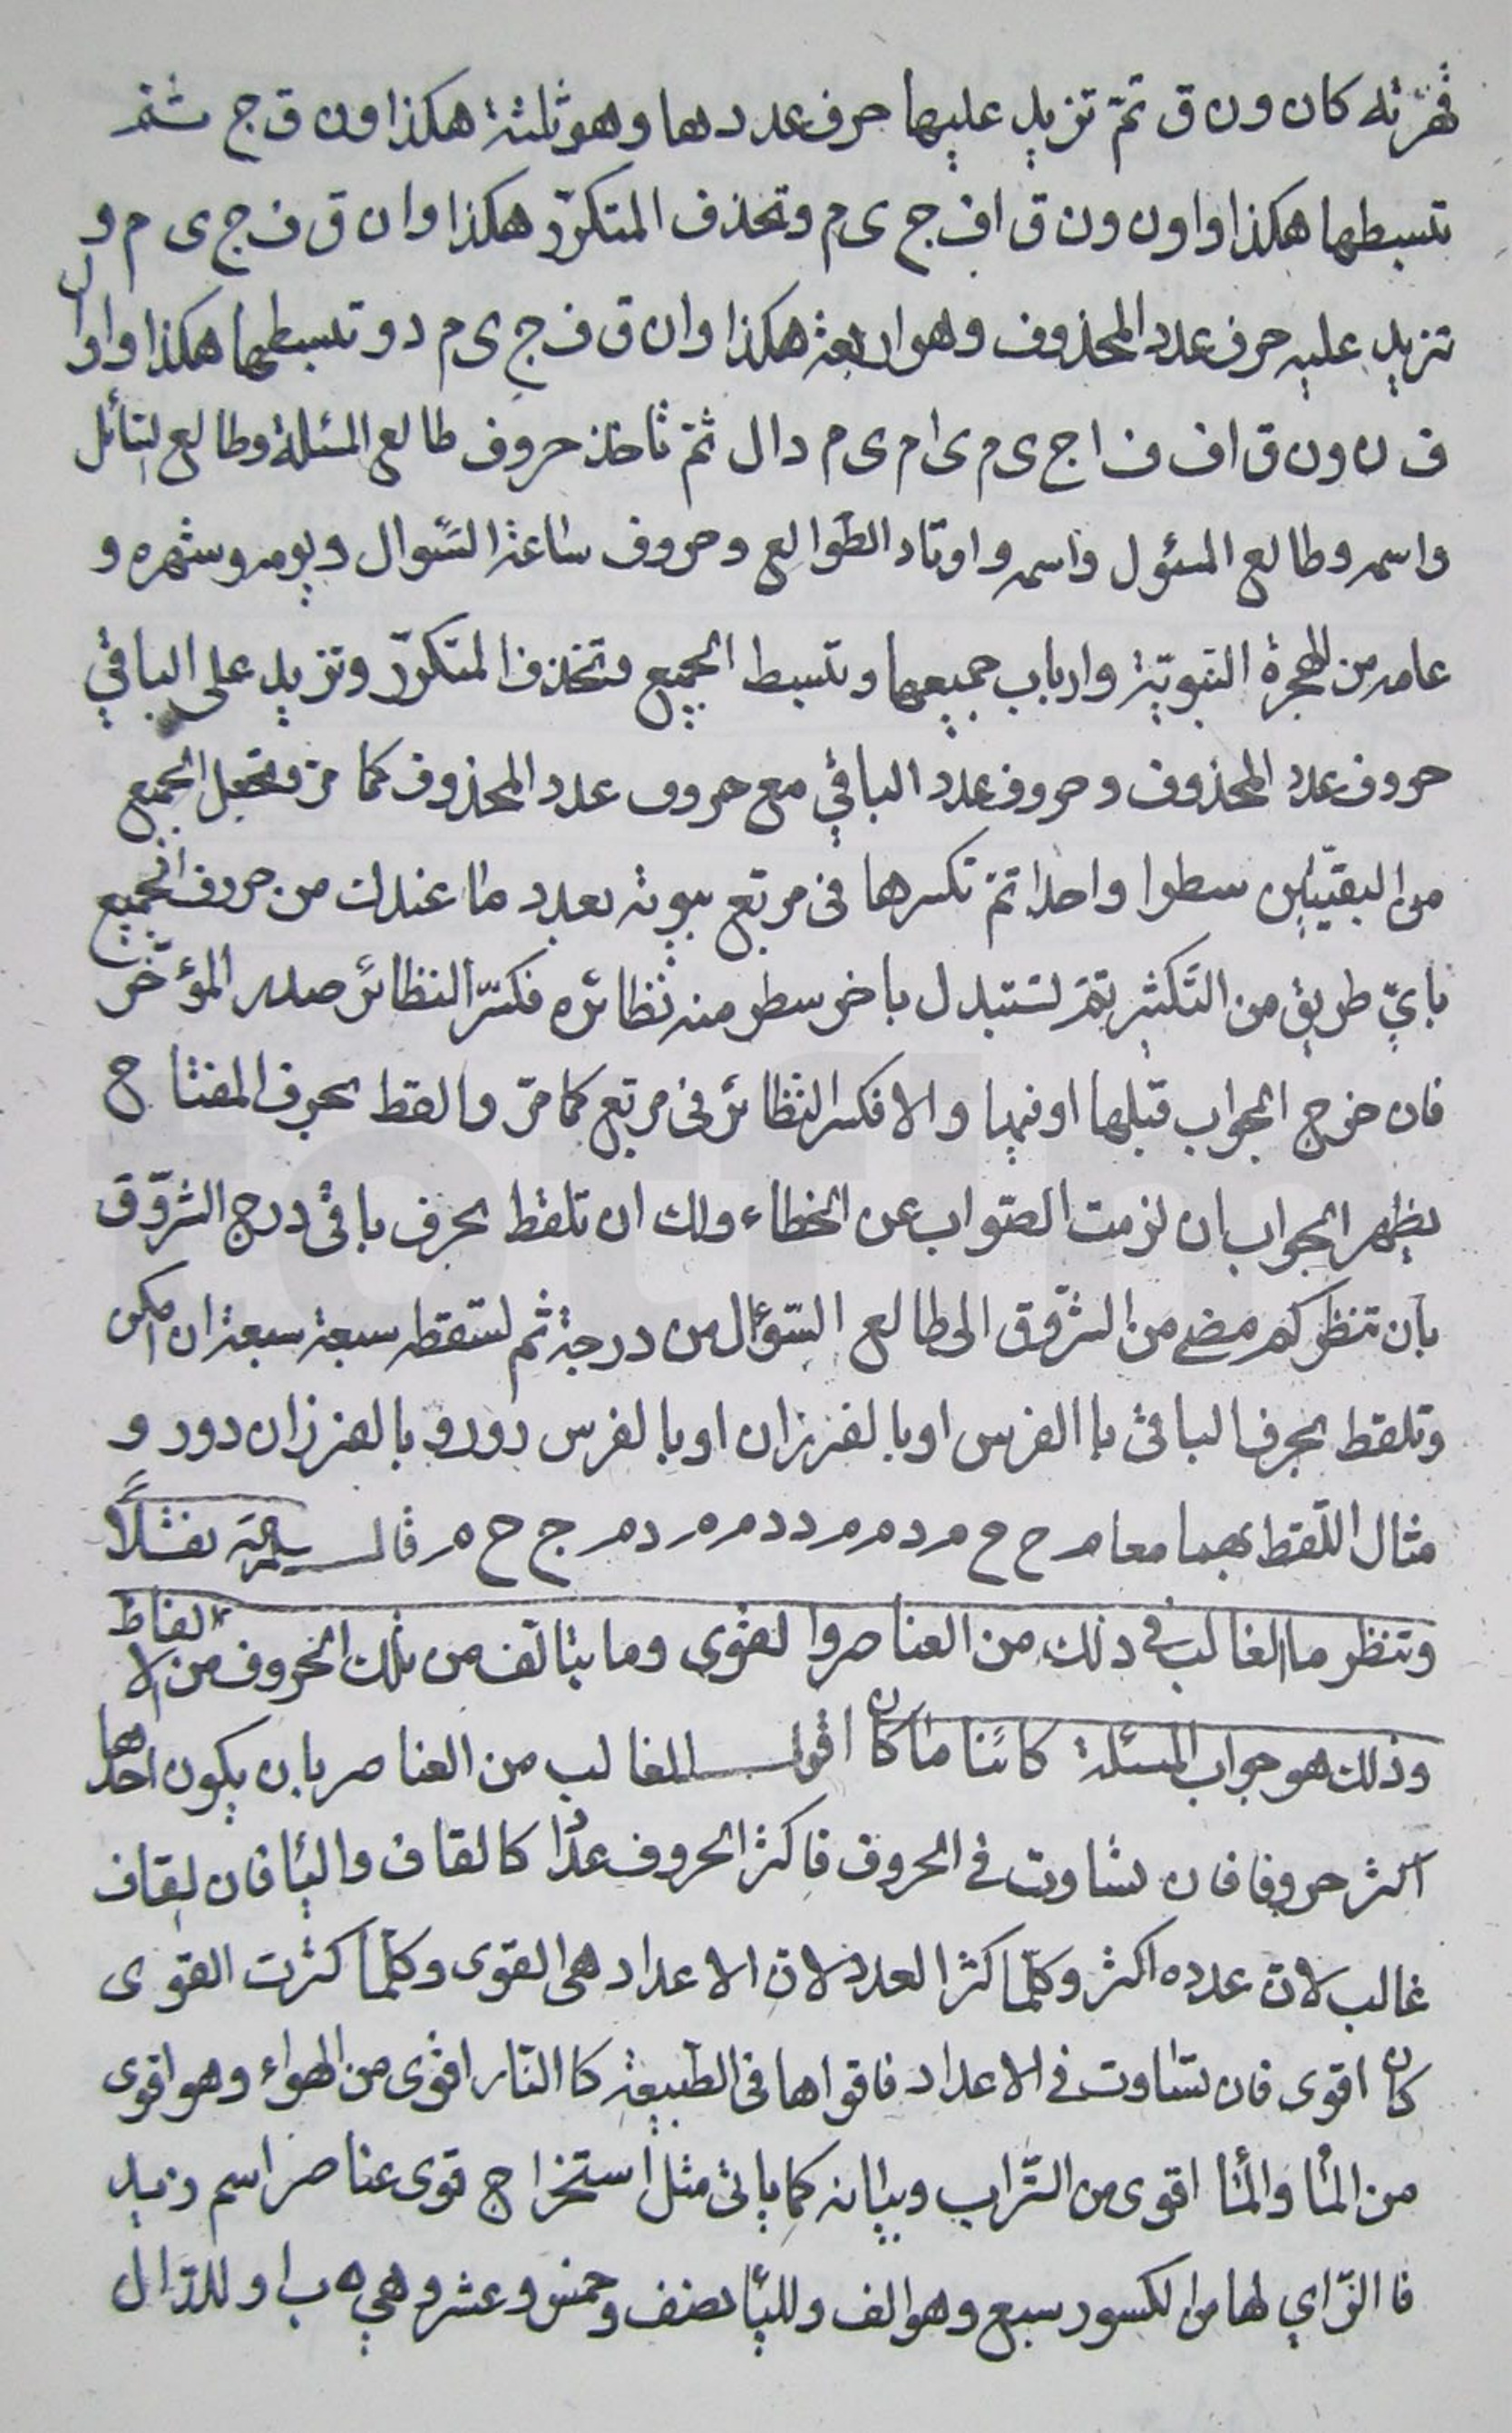 قهرته كان ون ق ثمّ تزيد عليها حرف عددها وهو ثلثة هكذا ون ق ج ثمّ
تبسطها هكذا واو ن ون ق اف ج ى م وتحذف المتكرّر هكذا و ا ن ق ف ج ى م و
تزيد عليه حرف عدد المحذوف وهو اربعة هكذا و ا ن ق ف ج ى م د وتبسطها هكذا واو ال
ف ن ون ق اف ف ا ج ى م ى ا م ى م دال ثمّ تاخذ حروف طالع المسئلة وطالع السّائل
واسمه وطالع المسئول واسمه واوتاد الطّوالع وحروف ساعة السّوال ويومه وشهره و
عامه من الهجرة النّبويّة وارباب جميعها وتبسط الجميع وتحذف المتكرّر وتزيد على الباقي
حروف عدد المحذوف وحروف عدد الباقي مع حروف عدد المحذوف كما مرّ وتجعل الجميع
من البقيّتين سطرا واحدا ثمّ تكسرها فى مربّع بيوته بعدد ما عندك من حروف الجميع
بايّ طريق من التّكثير ثمّ تستبدل باخر سطر منه نظائره فكسّر النظائر صدر المؤخّر
فان خرج الجواب قبلها او فيها والا فكسر النّظائر فى مربّع كما مرّ والقط بحرف المفتاح
يظهر الجواب ان لزمت الصّواب عن الخطاء ولك ان تلقط بحرف باقى درج الشّروق
بان تنظر كم مضى من الشّروق الى طالع السّؤال من درجة ثم تسقطه سبعة سبعة ان امكن
وتلقط بحرف الباقى باالفرس او بالفرزان او بالفرس دور وبالفرزان دور و
مثال اللّقط بهما معا م ح ح م د م م د د م ه م د م ج ح ه م قال سلّمه نفشلاً
وتنظر ما الغالب في ذلك من العناصر والقوى وما يتالّف من تلك الحروف من الالفاظ
وذلك هو جواب المسئلة كائنا ما كان اقول الغالب من العناصر بان يكون احدها
اكثر حروفا فان تساوت في الحروف فاكثر الحروف عددا كالقاف والياء فان القاف
غالب لانّ عدده اكثر وكلّما كثر العدد لانّ الاعداد هى القوى وكلّما كثرت القوى
كان اقوى فان تساوت في الاعداد فاقواها فى الطّبيعة كاالنّار اقوى من الهواء وهو اقوى
من الماء والماء اقوى من التّراب وبيانه كما ياتى مثل استخراج قوى عناصر اسم زيد
فاالزّاي لها من الكسور سبع وهو الف وللياء نصف وخمس وعشر وهي ه ب ا وللدّال